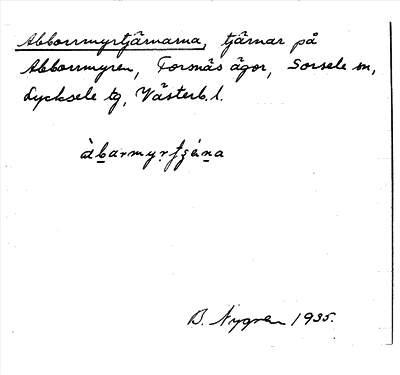 Abborrmyrtjärnarna, tjärnar på
Abborrmyren, Forsnäs ägor, Sorsele sn,
Lycksele tg, Västerb. l.
àbarmyrtʃæ̀ṇa
B. Nygren 1935.